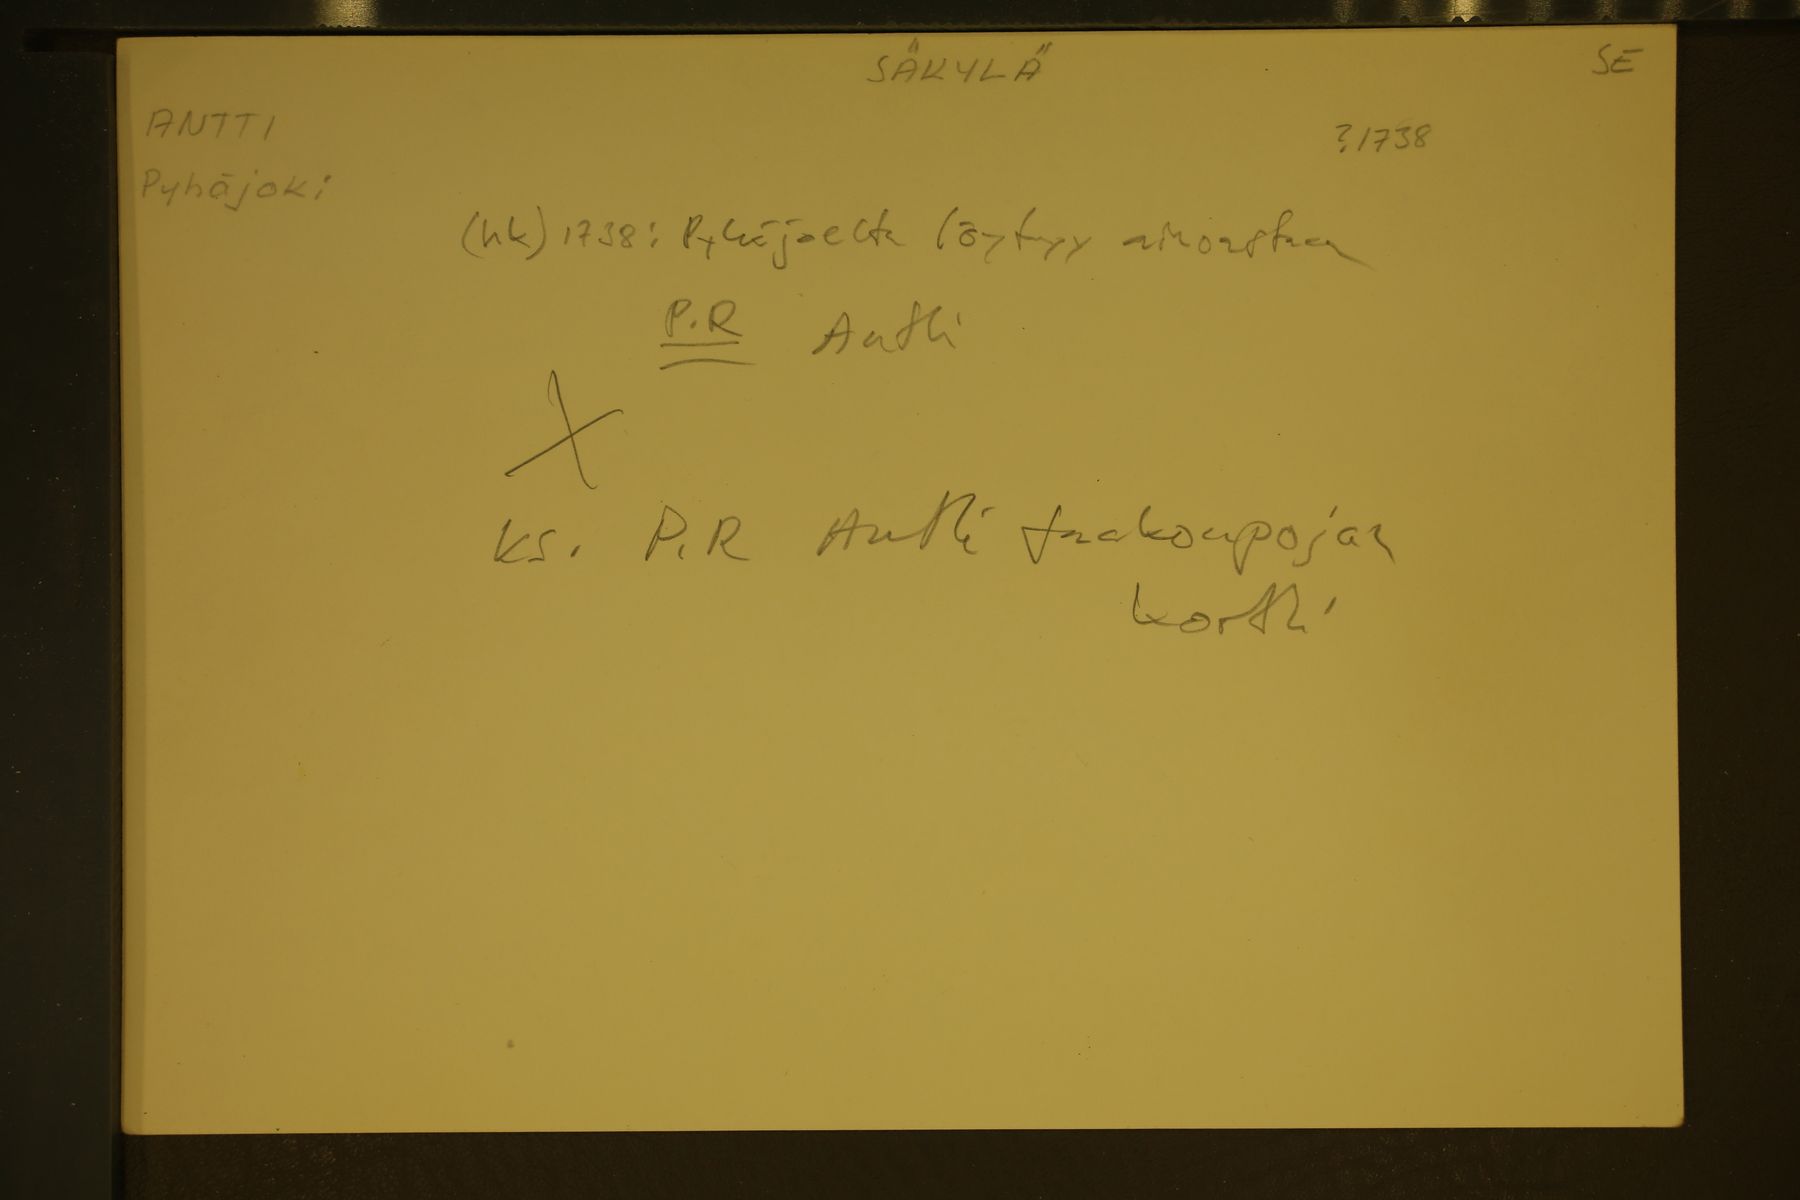 SÄKYLÄ
SE
ANTTI
?1738
Pyhäjoki
(hk) 1738: Pyhäjoelta löytyy ainoastaan
P.R Antti
X
ks. P.R Antti Jaakonpojan
kortti